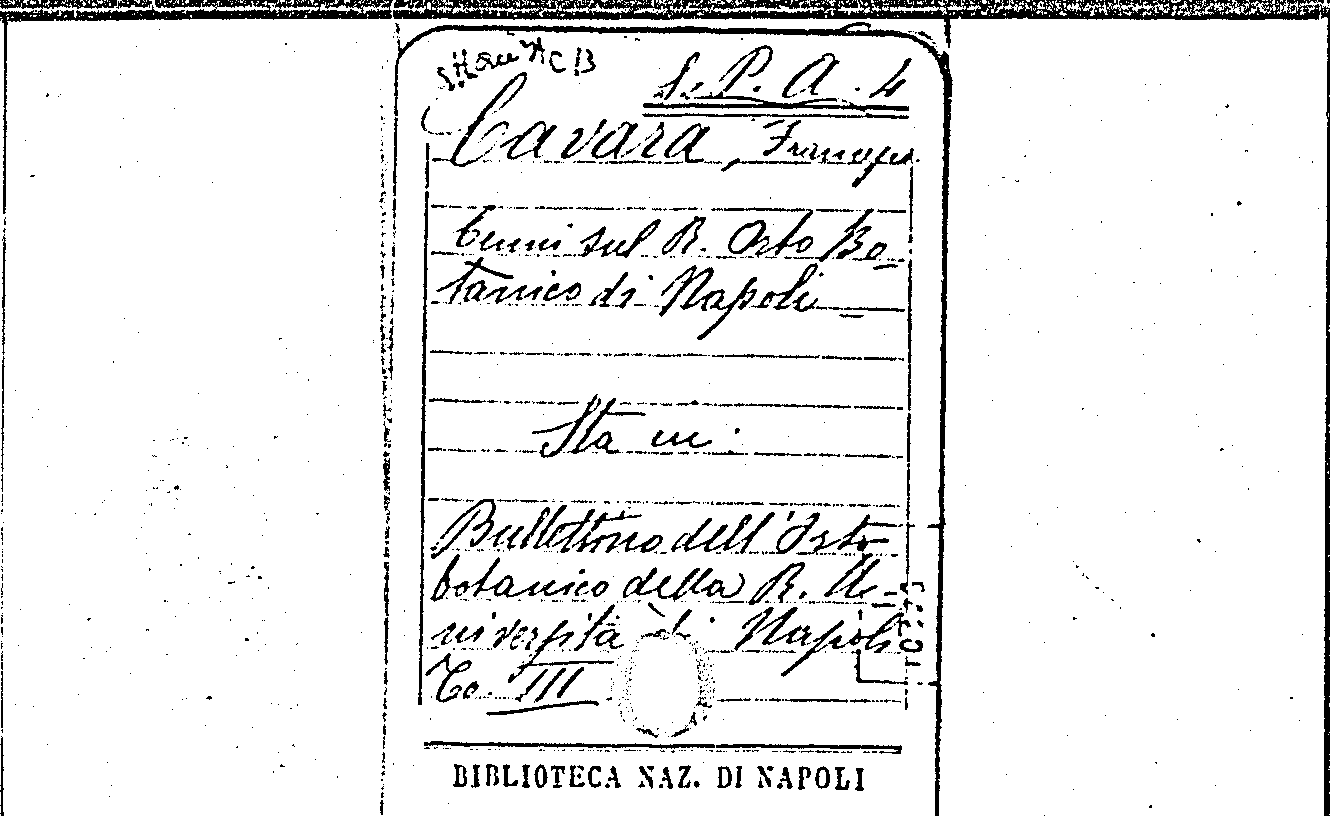 S. P. A. 4
Cavara,
Cenni sul R. Orto Bo-
tanico di Napoli -
Sta in:
Bullettino dell'Orto
botanico della R. U-
niversità di Napoli
To. III
BIBLIOTECA NAZ. DI NAPOLI